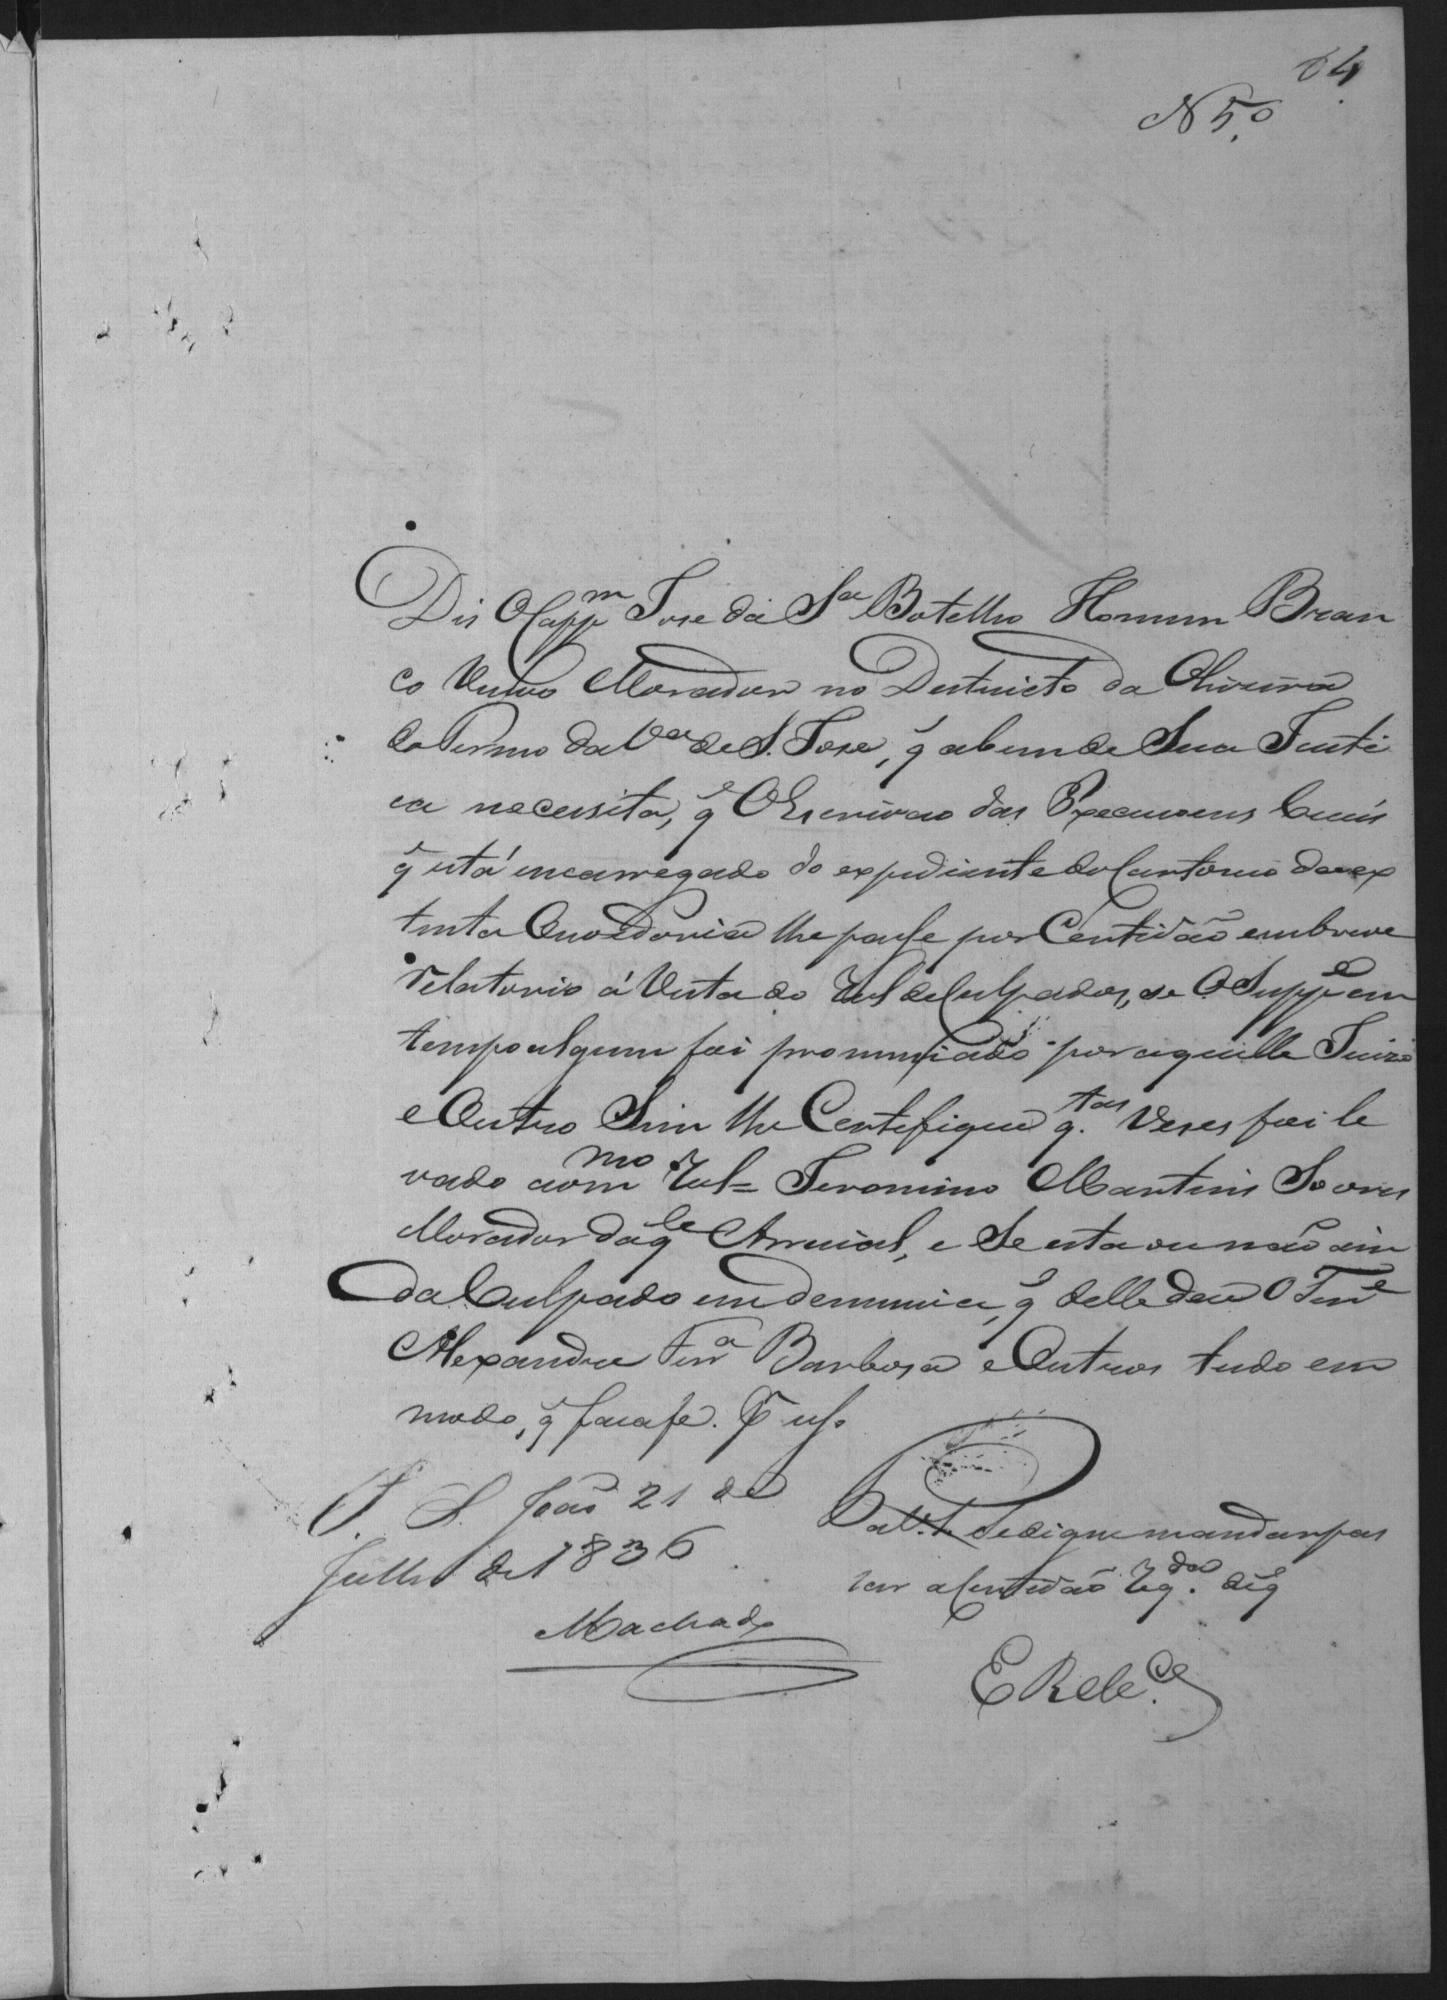 64
N 5.º
Dis O Capp.m Jose da S.a Botelho Homem Bran
co Viuvo Morador no Destricto da Oliveira
do Termo da V.a de S. Jose, q̃ abem de Sua Justi
ca necessita, q̃ O Escrivao das Execucoens Civeis
q̃ está encarregado do expediente do Cartorio da ex
tinta Ouvedoria lhe passe por Certidão em breve
relatorio á Vista do Rol de Culpados, se O Supp.e em
tempo algum foi pronunciado por aquelle Juizo
e Outro Sim lhe Certefique q.tas Veses foi le
vado ao m.mo Rol = Jeronimo Martins Soares
Morador daq.le Arraial, e Se esta ou não ain
da Culpado em denuncia, q̃ delle deu O Ten.e
Alexandre Ferr.a Barboza e Outros tudo em
modo, q̃ faca fe. P uso
P. S. João 21 de
Julho de 1836
Machado
P a V. S. Se digne mandar pas
sar a Certidão Reg.da de q̃
E R M.ce